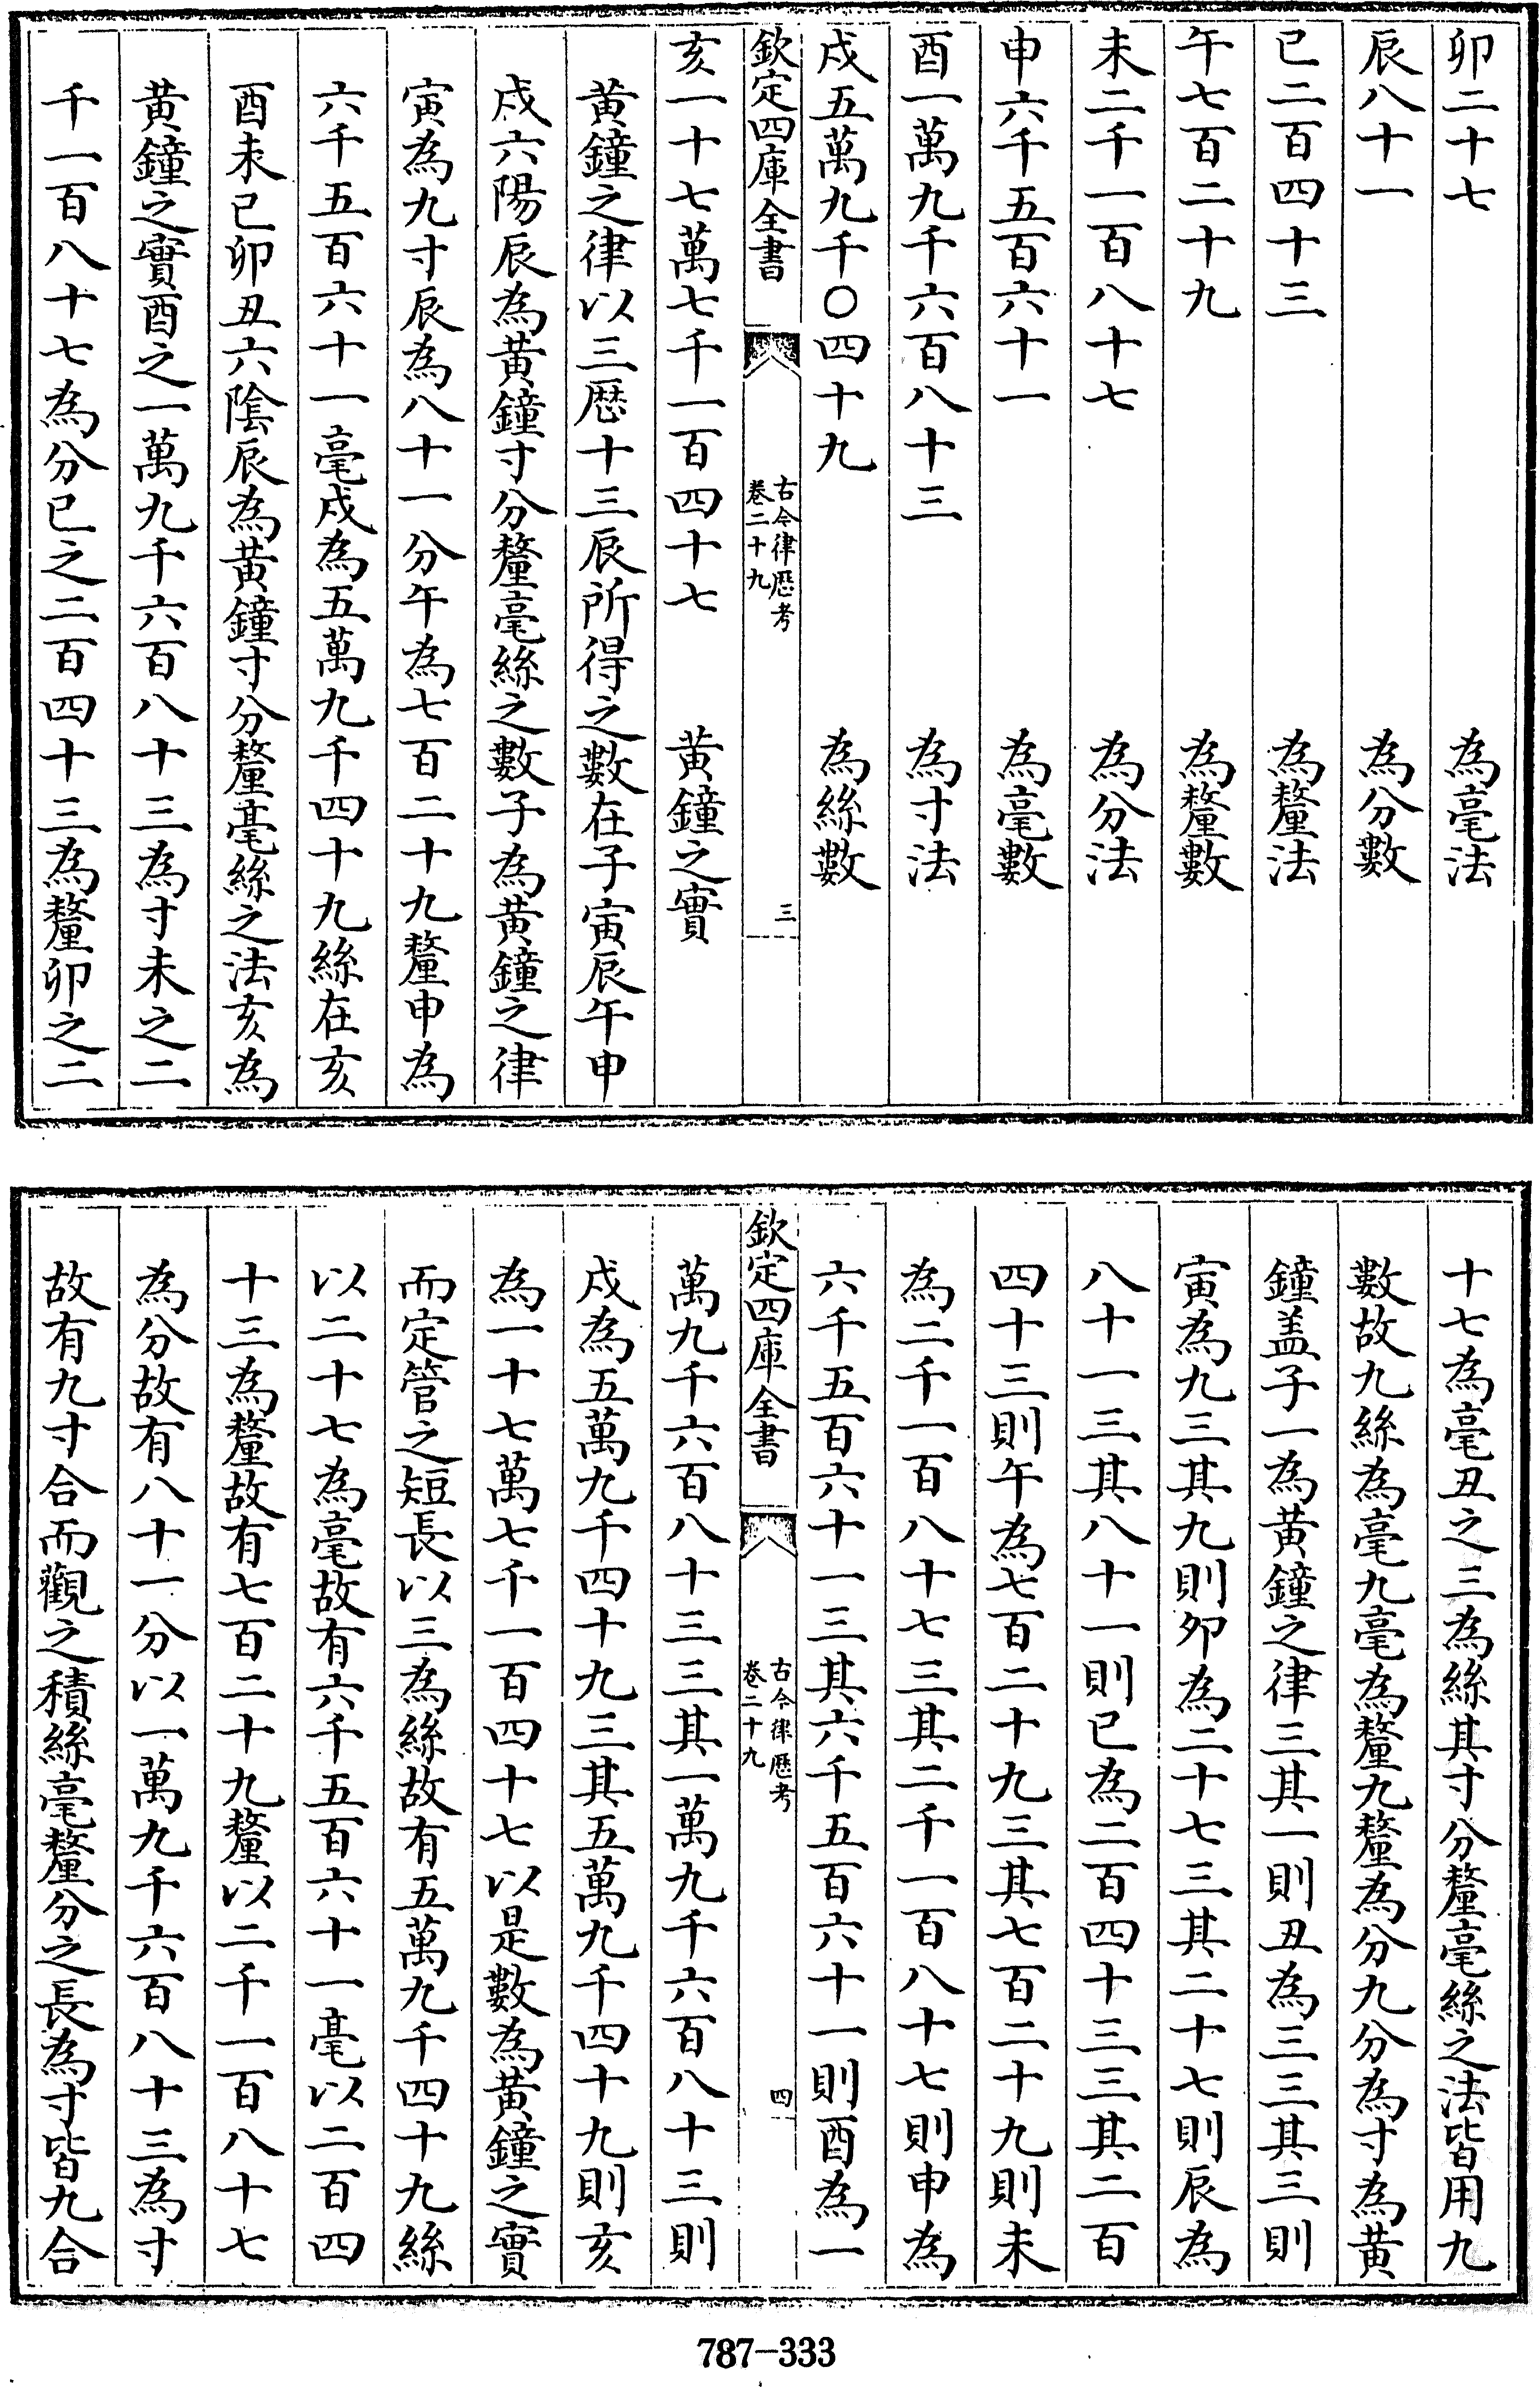 卯二十七　為毫法
辰八十一　為分數
巳二百四十三　為釐法
午七百二十九　為釐數
未二千一百八十七　為分法
申六千五百六十一　為毫數
酉一萬九千六百八十三　為寸法
戌五萬九千〇四十九　為絲數
欽定四庫全書　古今律歷考　卷二十九　三
亥一十七萬七千一百四十七　黃鐘之實
黃鐘之律以三歷十三辰所得之數在子寅辰午申
戌六陽辰為黃鐘寸分釐毫絲之數子為黃鐘之律
寅為九寸辰為八十一分午為七百二十九釐申為
六千五百六十一毫戌為五萬九千四十九絲在亥
酉未已卯丑六陰辰為黃鐘寸分釐毫絲之法亥為
黃鐘之實酉之一萬九千六百八十三為寸未之二
千一百八十七為分已之二百四十三為釐卯之二
十七為毫丑之三為絲其寸分釐毫絲之法皆用九
數故九絲為毫九毫為釐九釐為分九分為寸為黃
鐘盖子一為黃鐘之律三其一則丑為三三其三則
寅為九三其九則夘為二十七三其二十七則辰為
八十一三其八十一則已為二百四十三三其二百
四十三則午為七百二十九三其七百二十九則未
為二千一百八十七三其二千一百八十七則申為
六千五百六十一三其六千五百六十一則酉為一
欽定四庫全書　古今律歷考　卷二十九　四
萬九千六百八十三三其一萬九千六百八十三則
戌為五萬九千四十九三其五萬九千四十九則亥
為一十七萬七千一百四十七以是數為黃鐘之實
而定管之短長以三為絲故有五萬九千四十九絲
以二十七為毫故有六千五百六十一毫以二百四
十三為釐故有七百二十九釐以二千一百八十七
為分故有八十一分以一萬九千六百八十三為寸
故有九寸合而觀之積絲毫釐分之長為寸皆九合
787-333